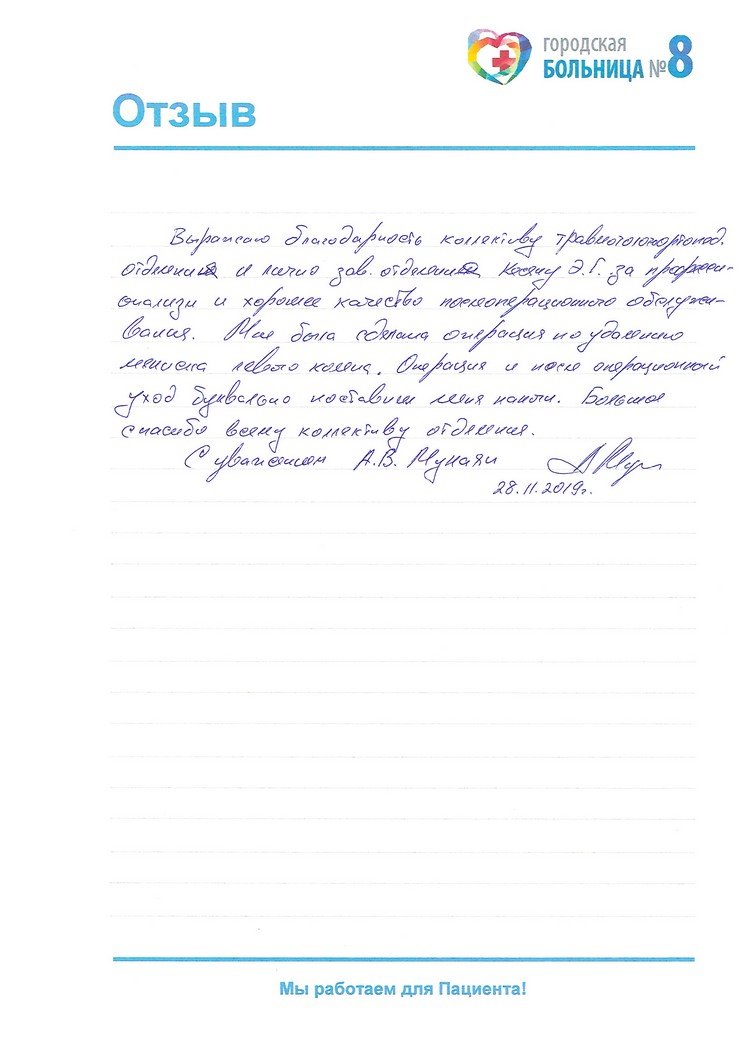 городская
БОЛЬНИЦА №8
Отзыв
Выражаю благодарность коллективу
отделения и лично зав. отделения Э.Г. за професси-
онализм и хорошее качество послеоперационного обслужи-
вания. Мне была сделана операция по удалению
мениска левого колена. Операция и после операционный
уход буквально поставили меня на ноги. Большое
спасибо всему коллективу отделения.
С уважением А.В.
28.11.2019г.
Мы работаем для Пациента!